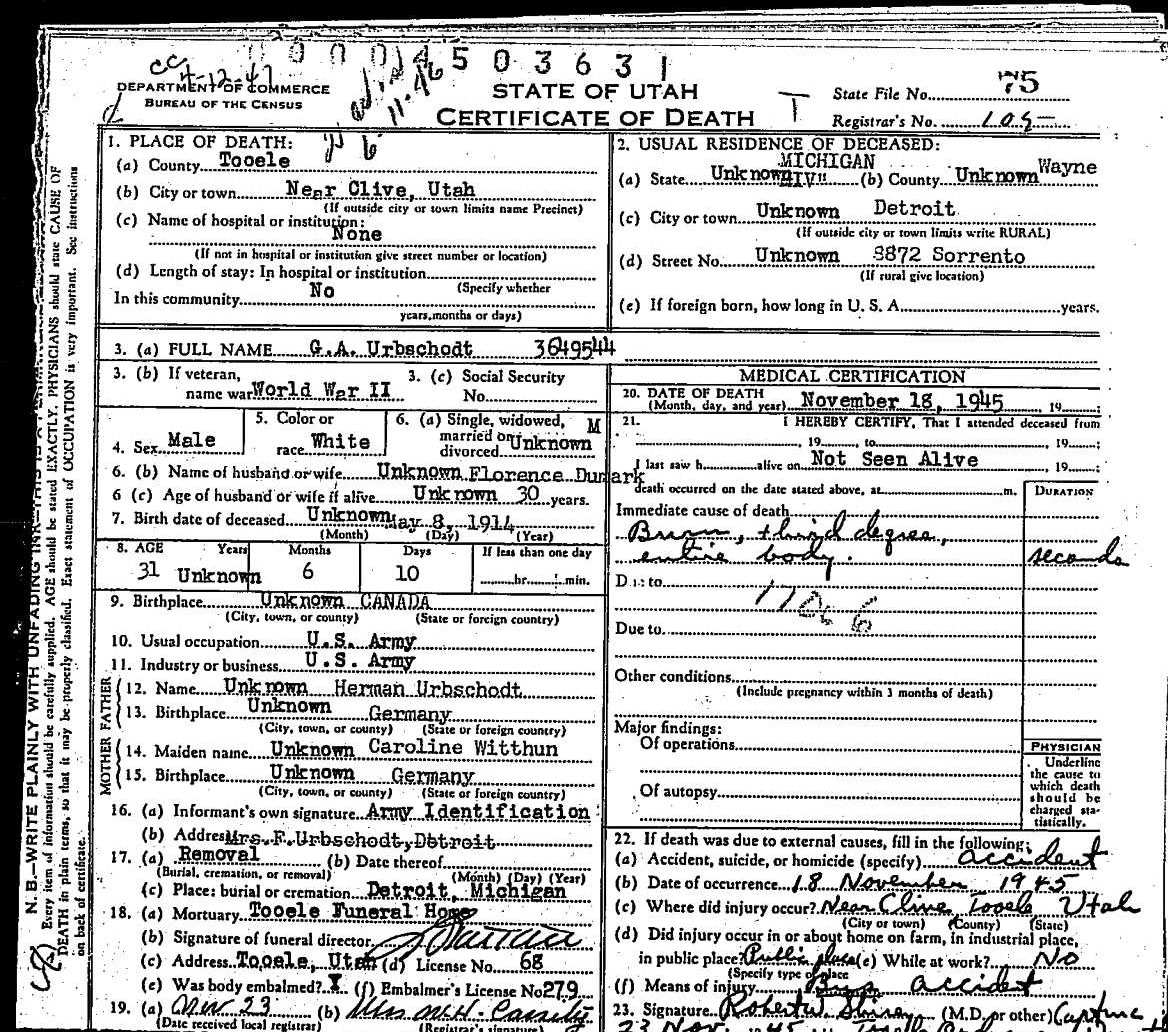 0 0 0 1 4 5 0 3 6 3 1
CC
4-12-47
11-46
DEPARTMENT OF COMMERCE
BUREAU OF THE CENSUS
STATE OF UTAH
CERTIFICATE OF DEATH
T
State File No. 75
Registrar's No. 105
1. PLACE OF DEATH:
(a) County Tooele
(b) City or town Near Clive, Utah
(If outside city or town limits name Precinct)
(c) Name of hospital or institution:
None
(If not in hospital or institution give street number or location)
(d) Length of stay: In hospital or institution
(Specify whether
In this community No
years, months or days)
2. USUAL RESIDENCE OF DECEASED:
MICHIGAN
(a) State Unknown "IV" (b) County Unknown Wayne
(c) City or town Unknown Detroit
(If outside city or town limits write RURAL)
(d) Street No. Unknown 8872 Sorrento
(If rural give location)
(e) If foreign born, how long in U. S. A. years.
3. (a) FULL NAME G.A. Urbschodt 3649544
3. (b) If veteran,
name war World War II
3. (c) Social Security
No.
4. Sex Male
5. Color or
race White
6. (a) Single, widowed, M
married or
divorced Unknown
6. (b) Name of husband or wife Unknown Florence Dumark
6 (c) Age of husband or wife if alive Unknown 30 years.
7. Birth date of deceased Unknown May 8, 1914
(Month) (Day) (Year)
8. AGE Years Months Days If less than one day
31 Unknown 6 10 hr. min.
9. Birthplace Unknown CANADA
(City, town, or county) (State or foreign country)
10. Usual occupation U.S. Army
11. Industry or business U.S. Army
FATHER
12. Name Unknown Herman Urbschodt
13. Birthplace Unknown Germany
(City, town, or county) (State or foreign country)
MOTHER
14. Maiden name Unknown Caroline Witthun
15. Birthplace Unknown Germany
(City, town, or county) (State or foreign country)
16. (a) Informant's own signature Army Identification
(b) Address Mrs. F. Urbschodt, Detroit
17. (a) Removal (b) Date thereof
(Burial, cremation, or removal) (Month) (Day) (Year)
(c) Place: burial or cremation Detroit, Michigan
18. (a) Mortuary Tooele Funeral Home
(b) Signature of funeral director
(c) Address Tooele, Utah (d) License No. 68
(e) Was body embalmed? X (f) Embalmer's License No 279
19. (a) Nov 23 (b) Mrs M.H.
(Date received local registrar) (Registrar's signature)
MEDICAL CERTIFICATION
20. DATE OF DEATH
(Month, day, and year) November 18, 1945, 19 ;
21. I HEREBY CERTIFY, That I attended deceased from
, 19 , to , 19 ;
I last saw h alive on Not Seen Alive , 19 ;
death occurred on the date stated above, at m.
DURATION
Immediate cause of death
Burn, third degree,
entire body. seconds
Due to
Due to
Other conditions
(Include pregnancy within 3 months of death)
Major findings:
Of operations
Of autopsy
PHYSICIAN
Underline
the cause to
which death
should be
charged sta-
tistically.
22. If death was due to external causes, fill in the following:
(a) Accident, suicide, or homicide (specify) accident
(b) Date of occurrence 18 November 1945
(c) Where did injury occur? Near Clive Tooele Utah
(City or town) (County) (State)
(d) Did injury occur in or about home on farm, in industrial place,
in public place? Public place (e) While at work? No
(Specify type of place
(f) Means of injury Bus accident
23. Signature Robert W. (M.D. or other)
23 Nov. 1945
N. B.—WRITE PLAINLY WITH UNFADING INK—THIS IS A
Every item of information should be carefully supplied. AGE should be stated EXACTLY. PHYSICIANS should state CAUSE OF
DEATH in plain terms, so that it may be properly classified. Exact statement of OCCUPATION is very important. See instructions
on back of certificate.